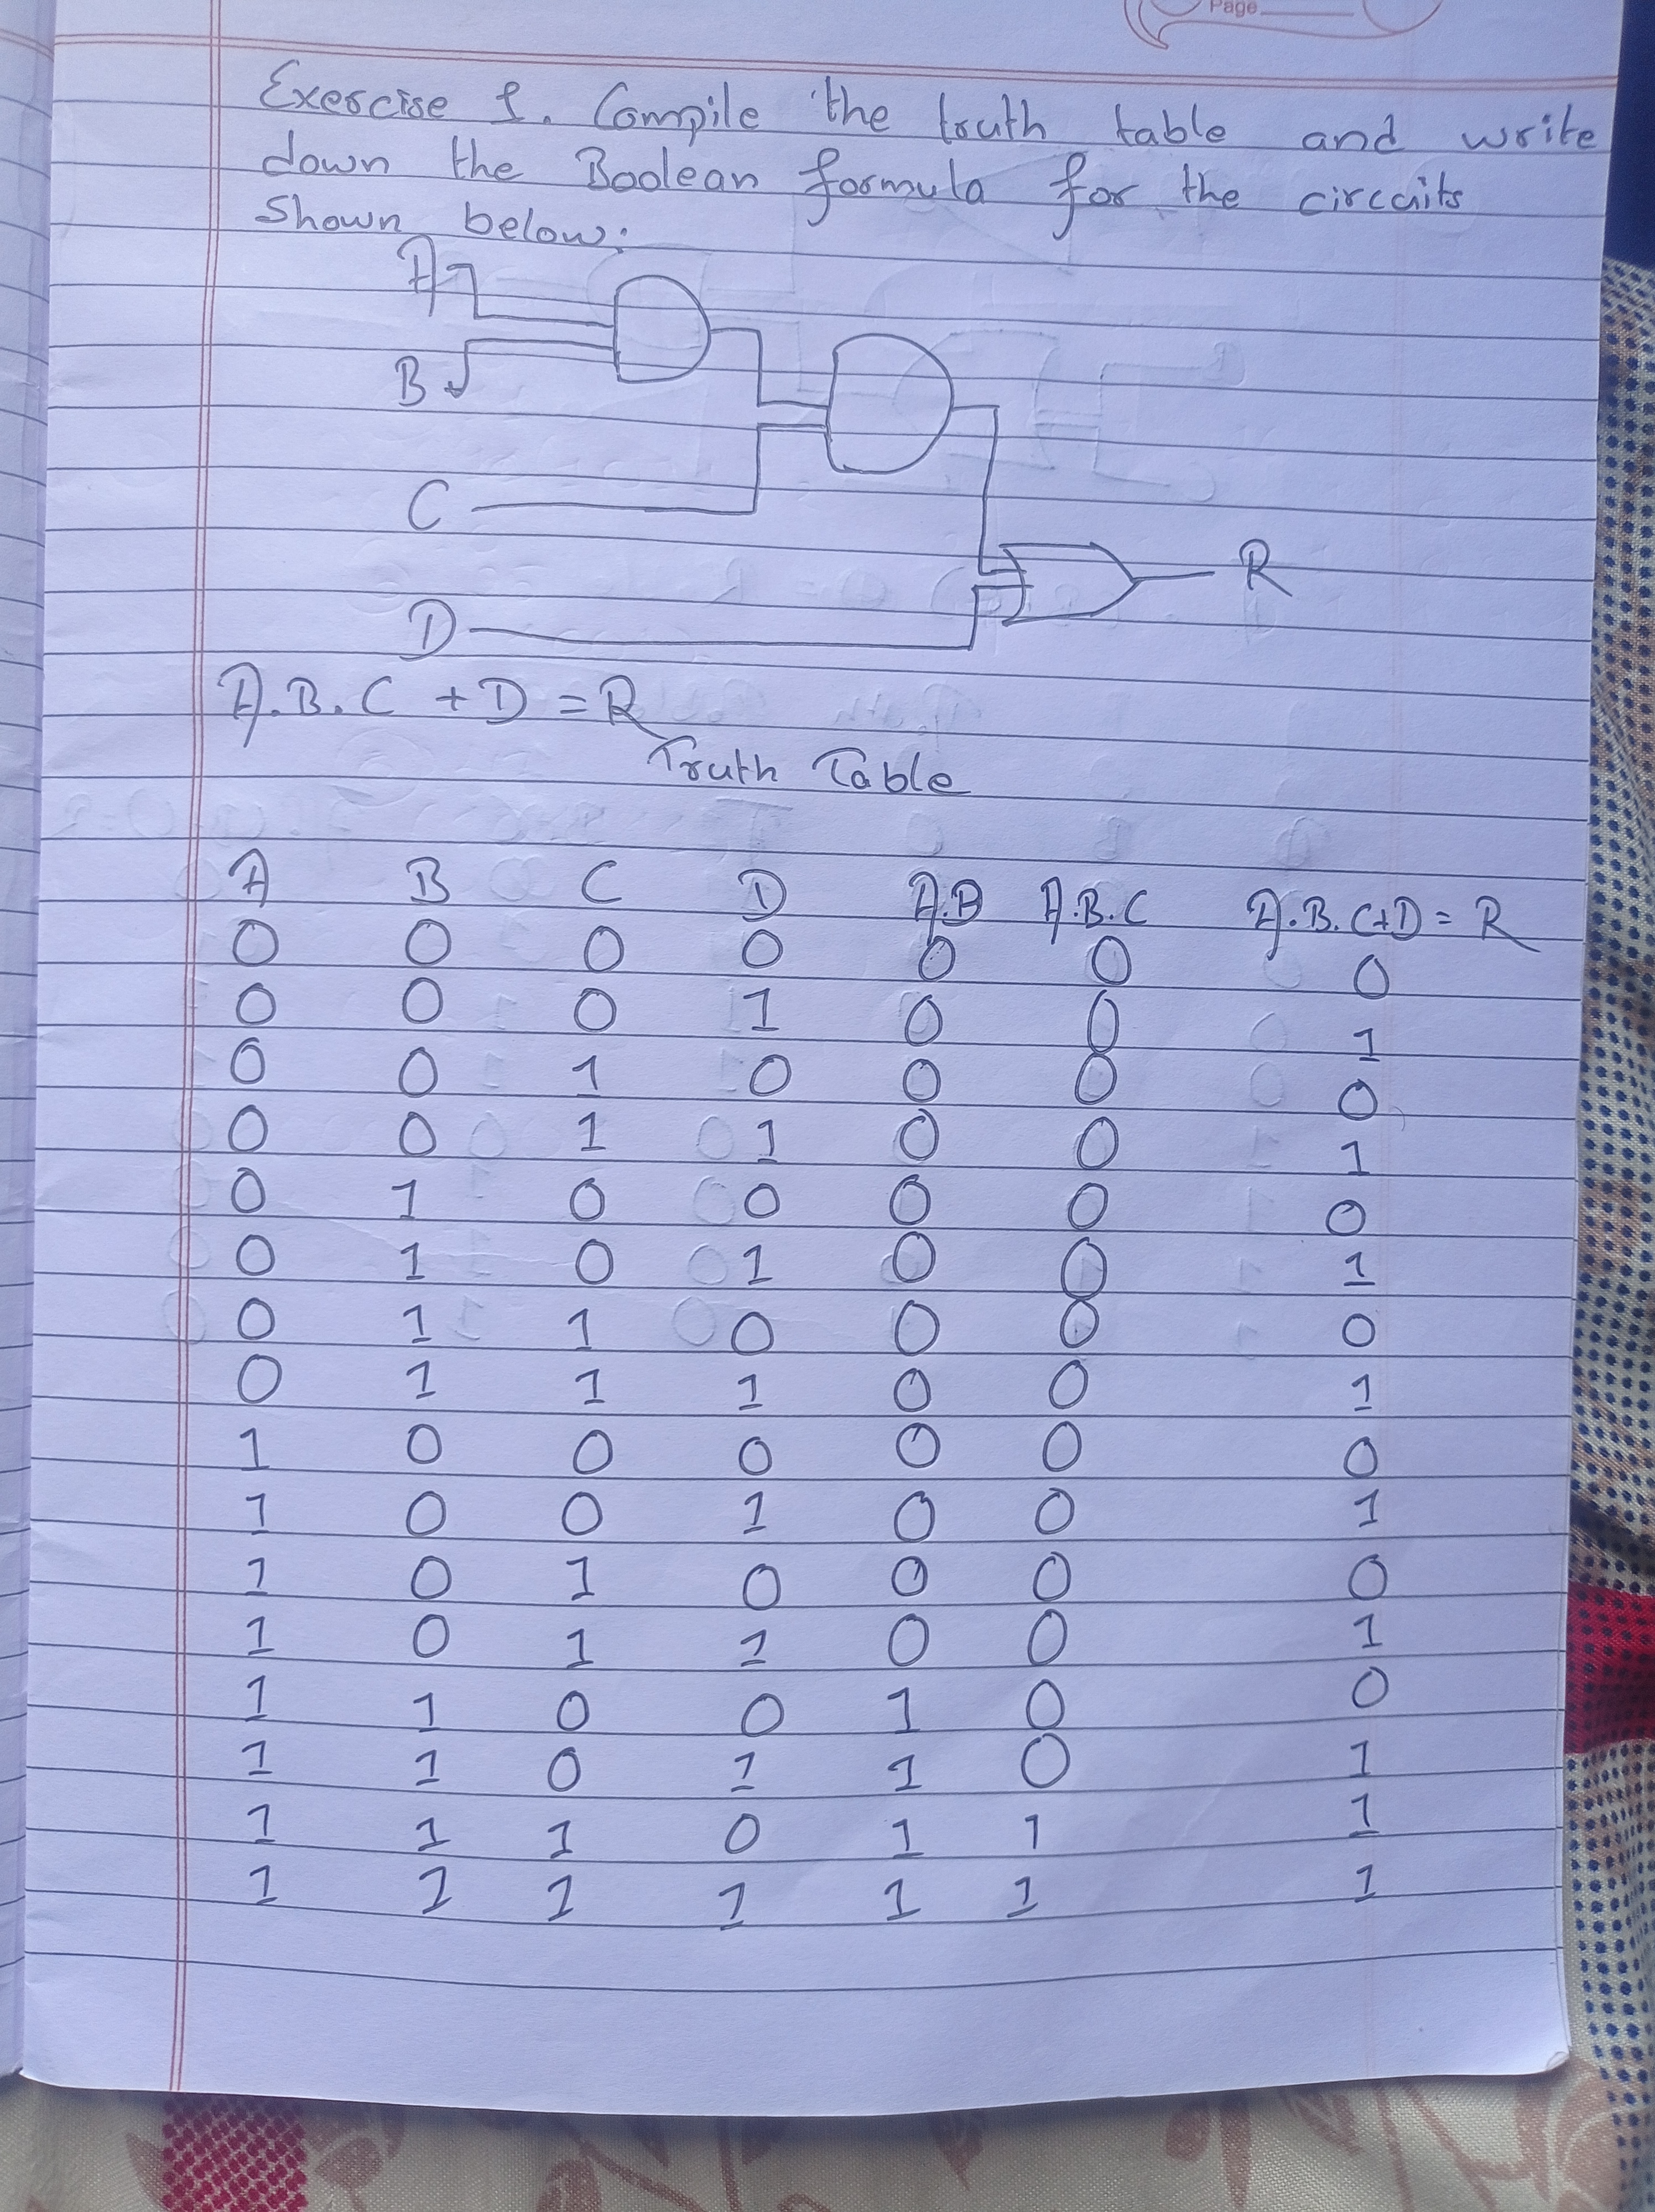 Page
Exercise 1. Compile the truth table and write
down the Boolean formula for the circuits
Shown below:
A
B
C
R
D
A.B.C + D = R
Truth Table
A B C D A.B A.B.C A.B.C+D = R
0 0 0 0 0 0 0
0 0 0 1 0 0 1
0 0 1 0 0 0 0
0 0 1 1 0 0 1
0 1 0 0 0 0 0
0 1 0 1 0 0 1
0 1 1 0 0 0 0
0 1 1 1 0 0 1
1 0 0 0 0 0 0
1 0 0 1 0 0 1
1 0 1 0 0 0 0
1 0 1 1 0 0 1
1 1 0 0 1 0 0
1 1 0 1 1 0 1
1 1 1 0 1 1 1
1 1 1 1 1 1 1